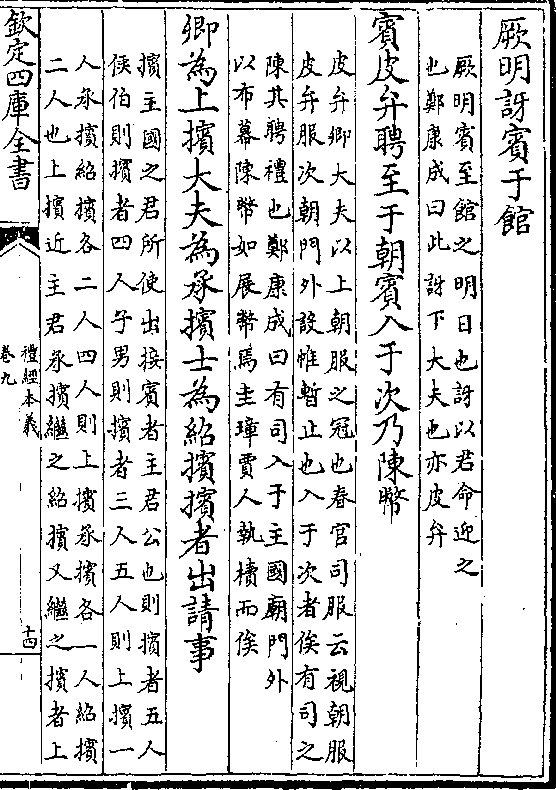 厥明訝賓于館
厥明賓至館之明日也訝以君命迎之
也鄭康成曰此訝下大夫也亦皮弁
賓皮弁聘至于朝賓入于次乃陳幣
皮弁卿大夫以上朝服之冠也春官司服云視朝服
皮弁服次朝門外設帷暫止也入于次者俟有司之
陳其聘禮也鄭康成曰有司入于主國廟門外
以布幕陳幣如展幣焉圭璋賈人執櫝而俟
卿為上擯大夫為承擯士為紹擯擯者出請事
擯主國之君所使出接賓者主君公也則擯者五人
侯伯則擯者四人子男則擯者三人五人則上擯一
人承擯紹擯各二人四人則上擯承擯各一人紹擯
二人也上擯近主君承擯繼之紹擯又繼之擯者上
欽定四庫全書
禮經本義
卷九
十四